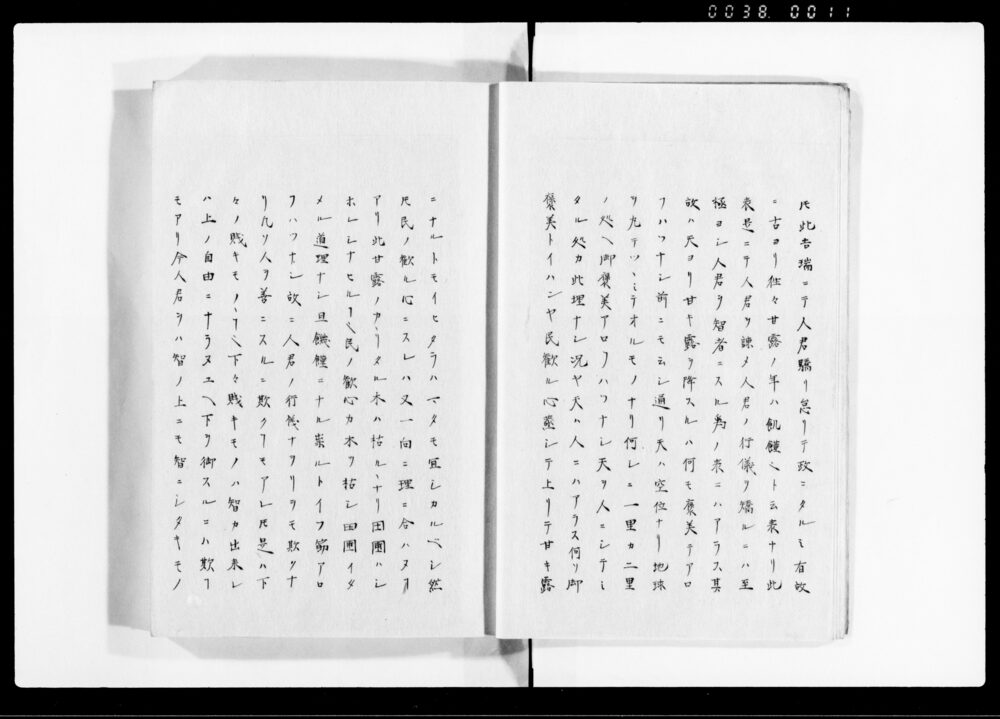 0038 0011
㪽此吉瑞ニテ人君驕リ怠リテ政ニタルミ有故
ニ古ヨリ往々甘露ノ年ハ飢饉ヽト云表ナリ此
表是ニテ人君ヲ諫メ人君ノ行儀ヲ矯ルニハ至
極ヨシ人君ヲ智者ニスル為ノ表ニハアラス其
故ハ天ヨリ甘キ露ヲ降スルハ何モ褒美テアロ
フハフナシ前ニモ云シ通リ天ハ空位ナリ地球
リ丸テツヽミテオルモノナリ何レニ一里カ二里
ノ処ヘ御褒美アロフハツナシ天ヲ人ニシテミ
タル処カ此理ナシ況ヤ天ハ人ニハアラス何ソ御
褒美トイハンヤ民歓ル心薫シテ上リテ甘キ露
ニナルトモイヒタラハマタモ宜シカルヘシ然
㪽民ノ歓ル心ニスレハ又一向ニ理ニ合ハヌヿ
アリ此甘露ノカヽリタル木ハ枯ルヽナリ田圃ハシ
ホレシナヒルヿヽ民ノ歓心カ木ヲ枯シ田圃イタ
メル道理ナシ且饑饉ニナル祟ルトイフ筋アロ
フハツナシ故ニ人君ノ行儀ナヲリヲモ欺クナ
リ凡ソ人ヲ善ニスルニ欺クヿモアレ㪽是ハ下
々ノ賤キモノヽヿヽ下々賤キモノハ智カ出来レ
ハ上ノ自由ニナラヌユヘ下ヲ御スルニハ欺ヿ
モアリ今人君ヲハ智ノ上ニモ智ニシタキモノ